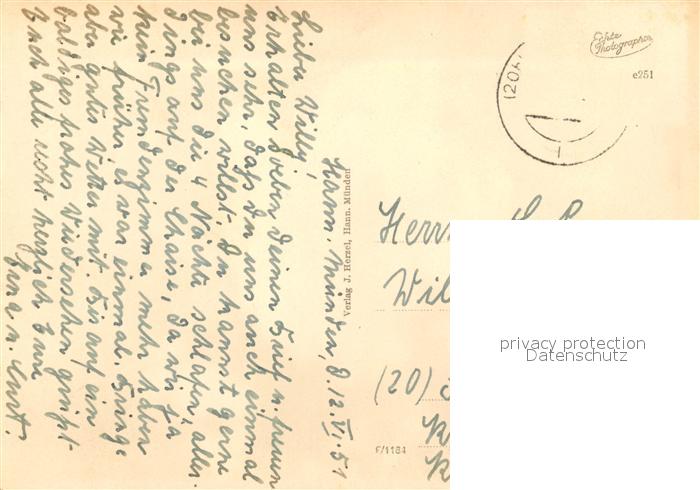 Hann. Münden, d. 12. VI. 51
Lieber Willy,
Erhalten soeben Deinen Brief u. freuen
uns sehr, daß Du uns auch einmal
besuchen willst. Du kannst gerne
bei uns die 4 Nächte schlafen, aller-
dings auf der Chaise, da wir ja
kein Fremdenzimmer mehr haben
wie früher, es war einmal. Bringe
aber gutes Wetter mit. Bis auf ein
baldiges frohes Wiedersehen grüßt
Euch alle recht herzlich Eure
u. Curt.
Verlag J. Herzel, Hann. Münden
F/1184
Echte
Photographie
e251
(20
Herrn
Wil
(20)
K
K
privacy protection
Datenschutz